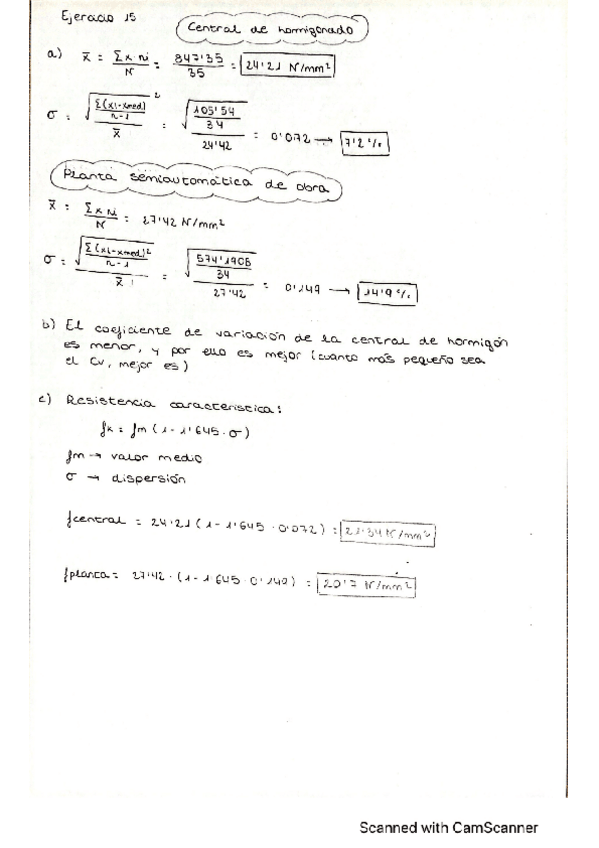 Ejercicio 15
Central de hormigonado
a) x̄ = Σx·ni / N = 847'35 / 35 = 24'21 N/mm²
σ = √(Σ(xi-xmed)² / n-1) / x̄ = √(105'54 / 34) / 24'42 = 0'072 → 7'2 %
Planta semiautomática de obra
x̄ = Σx ni / N = 27'42 N/mm²
σ = √(Σ(xi-xmed)² / n-1) / x̄ = √(574'1908 / 34) / 27'42 = 0'149 → 14'9 %
b) El coeficiente de variación de la central de hormigón
es menor, y por ello es mejor (cuanto más pequeño sea
el CV, mejor es)
c) Resistencia característica:
fk = fm (1 - 1'645 · σ)
fm → valor medio
σ → dispersión
fcentral = 24'21 (1 - 1'645 · 0'072) = 21'34 N/mm²
fplanta = 27'42 · (1 - 1'645 · 0'149) = 20'7 N/mm²
Scanned with CamScanner